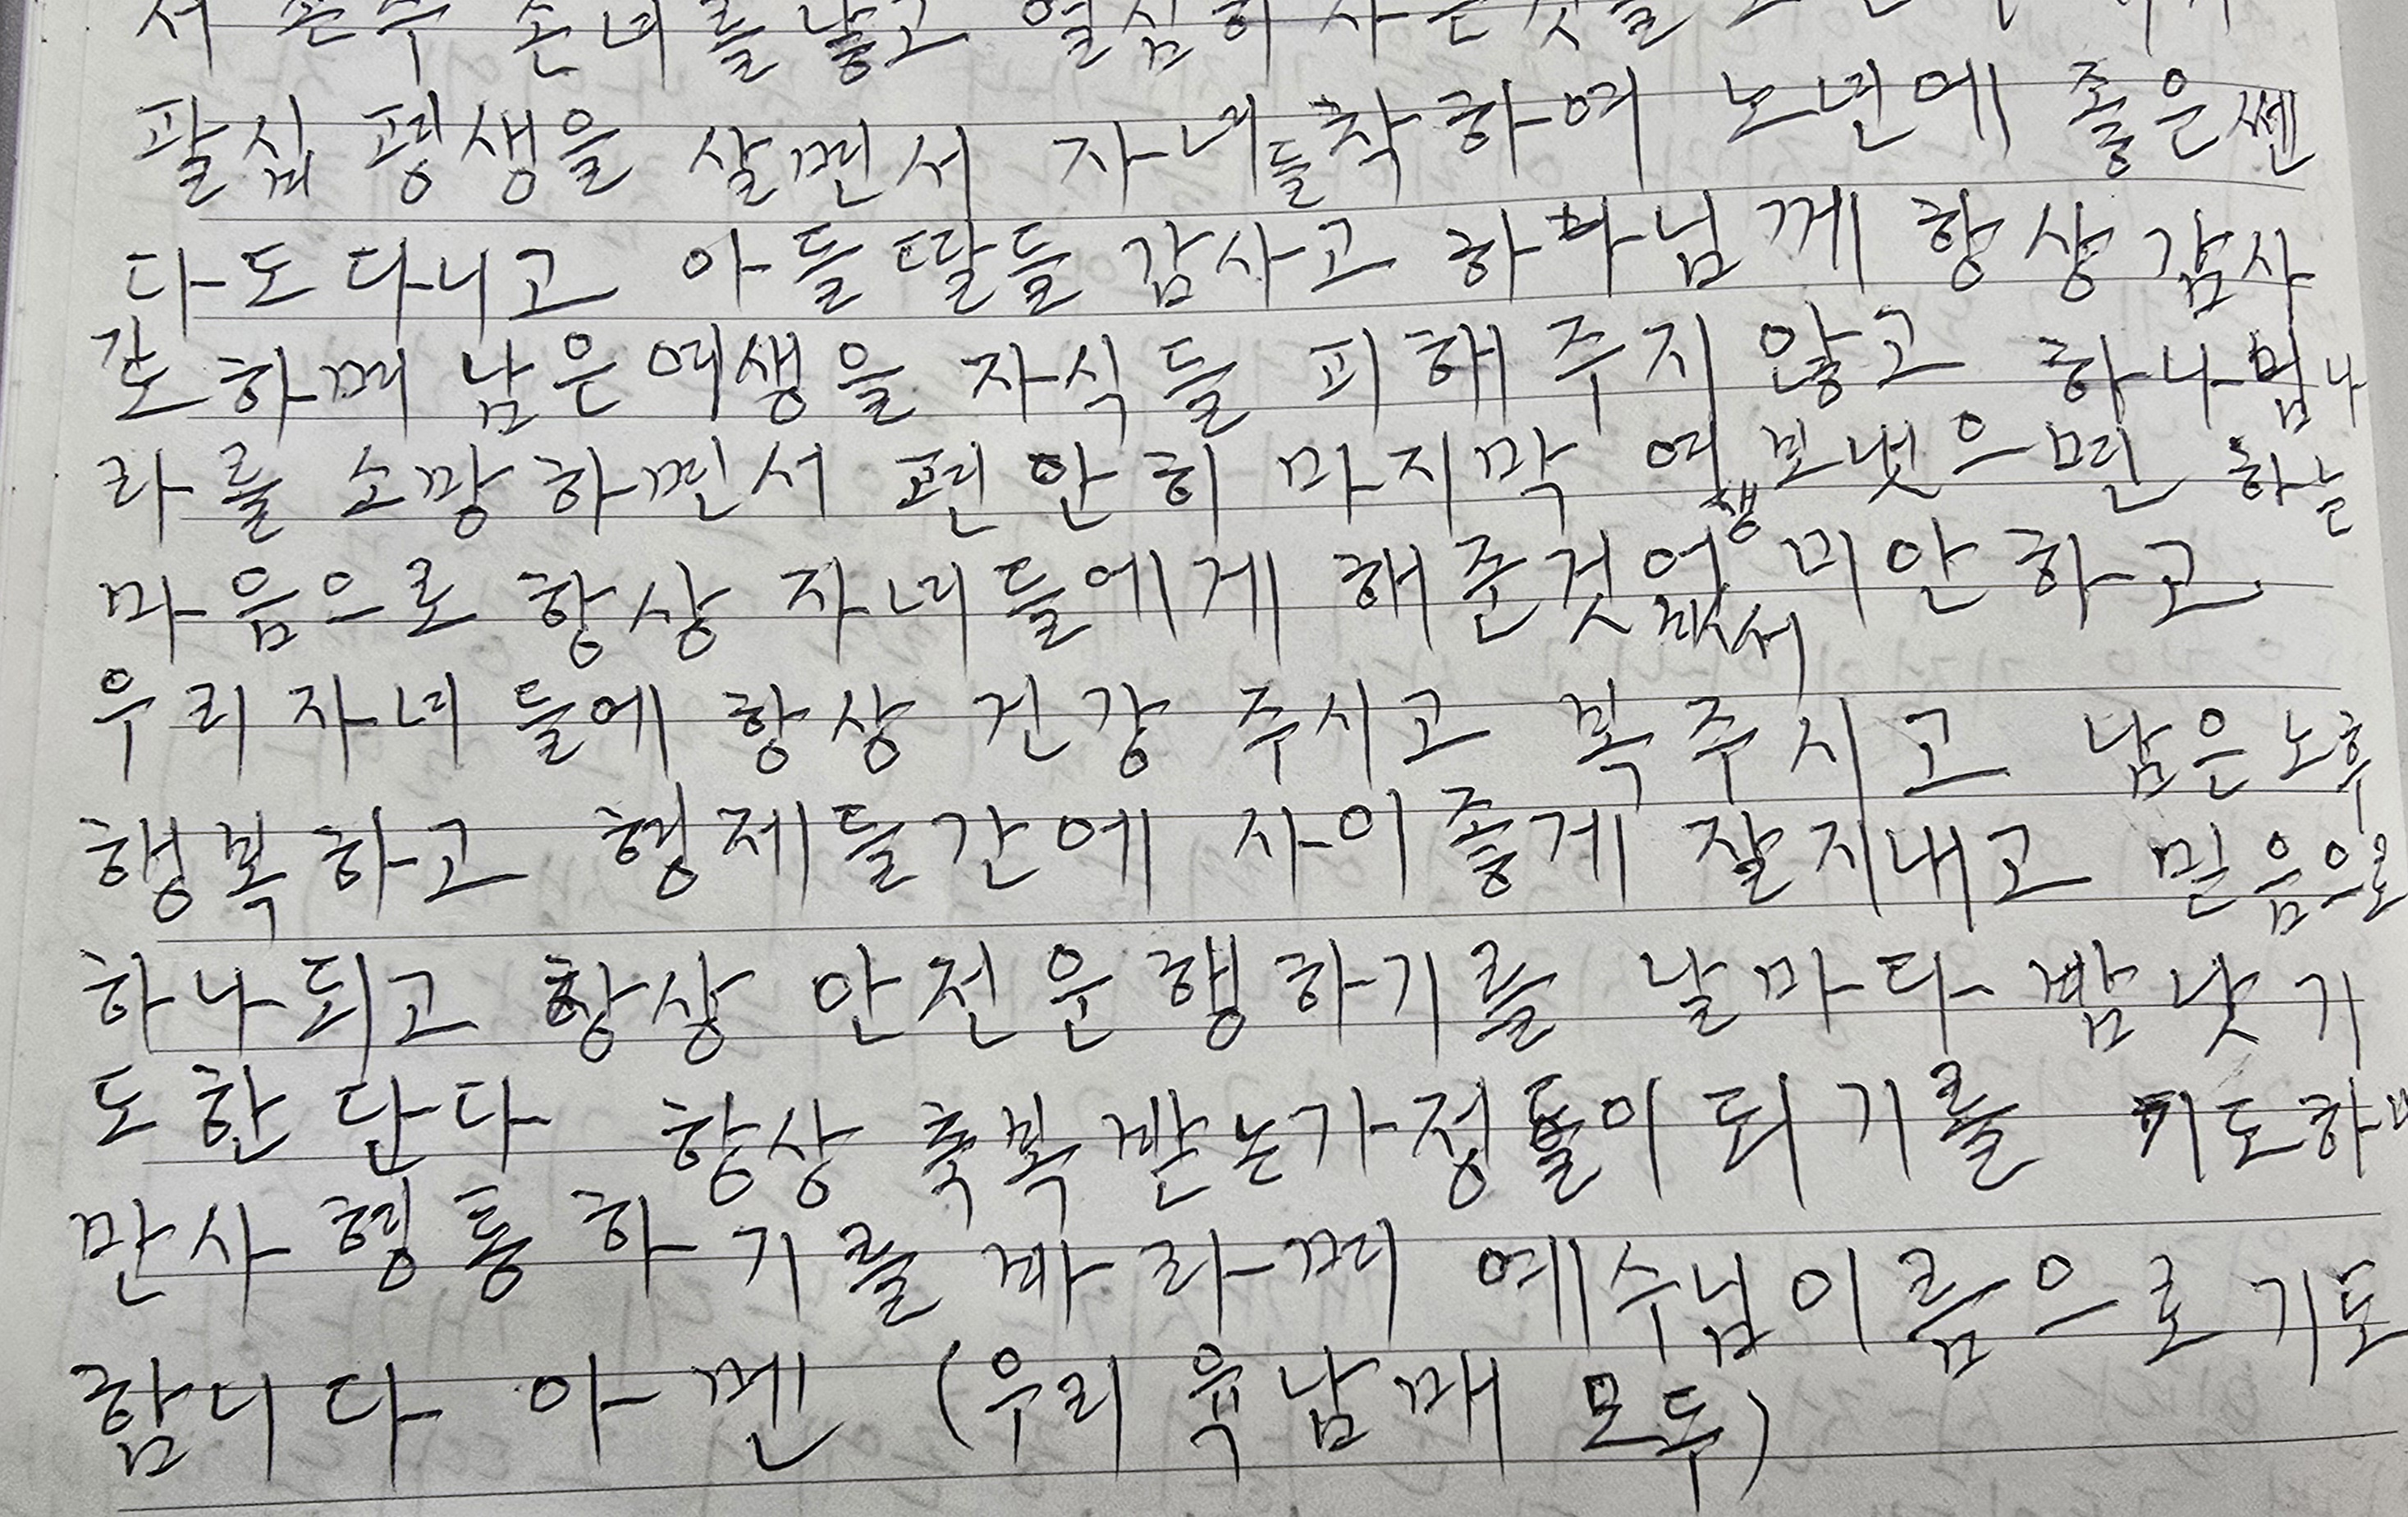 서 손주 손녀를 낳고 열심히 사는것을
팔십 평생을 살면서 자녀들 착하여 노년에 좋은 쎈
다도 다니고 아들 딸들 감사고 하나님께 항상 감사
기도하며 남은 여생을 자식들 피해 주지 않고 하나님 나
라를 소망하면서 편안히 마지막 여생 보냇으면 하는
마음으로 항상 자녀들에게 해준것 없어서 미안하고.
우리 자녀들에 항상 건강 주시고 복주시고 남은 노후
행복하고 형제들간에 사이좋게 잘지내고 믿음으로
하나되고 항상 안전운행하기를 날마다 밤낮 기
도한단다 항상 축복받는가정들이 되기를 기도하며
만사 형통하기를 바라며 예수님이름으로 기도
함니다 아멘 (우리 육남매 모두)